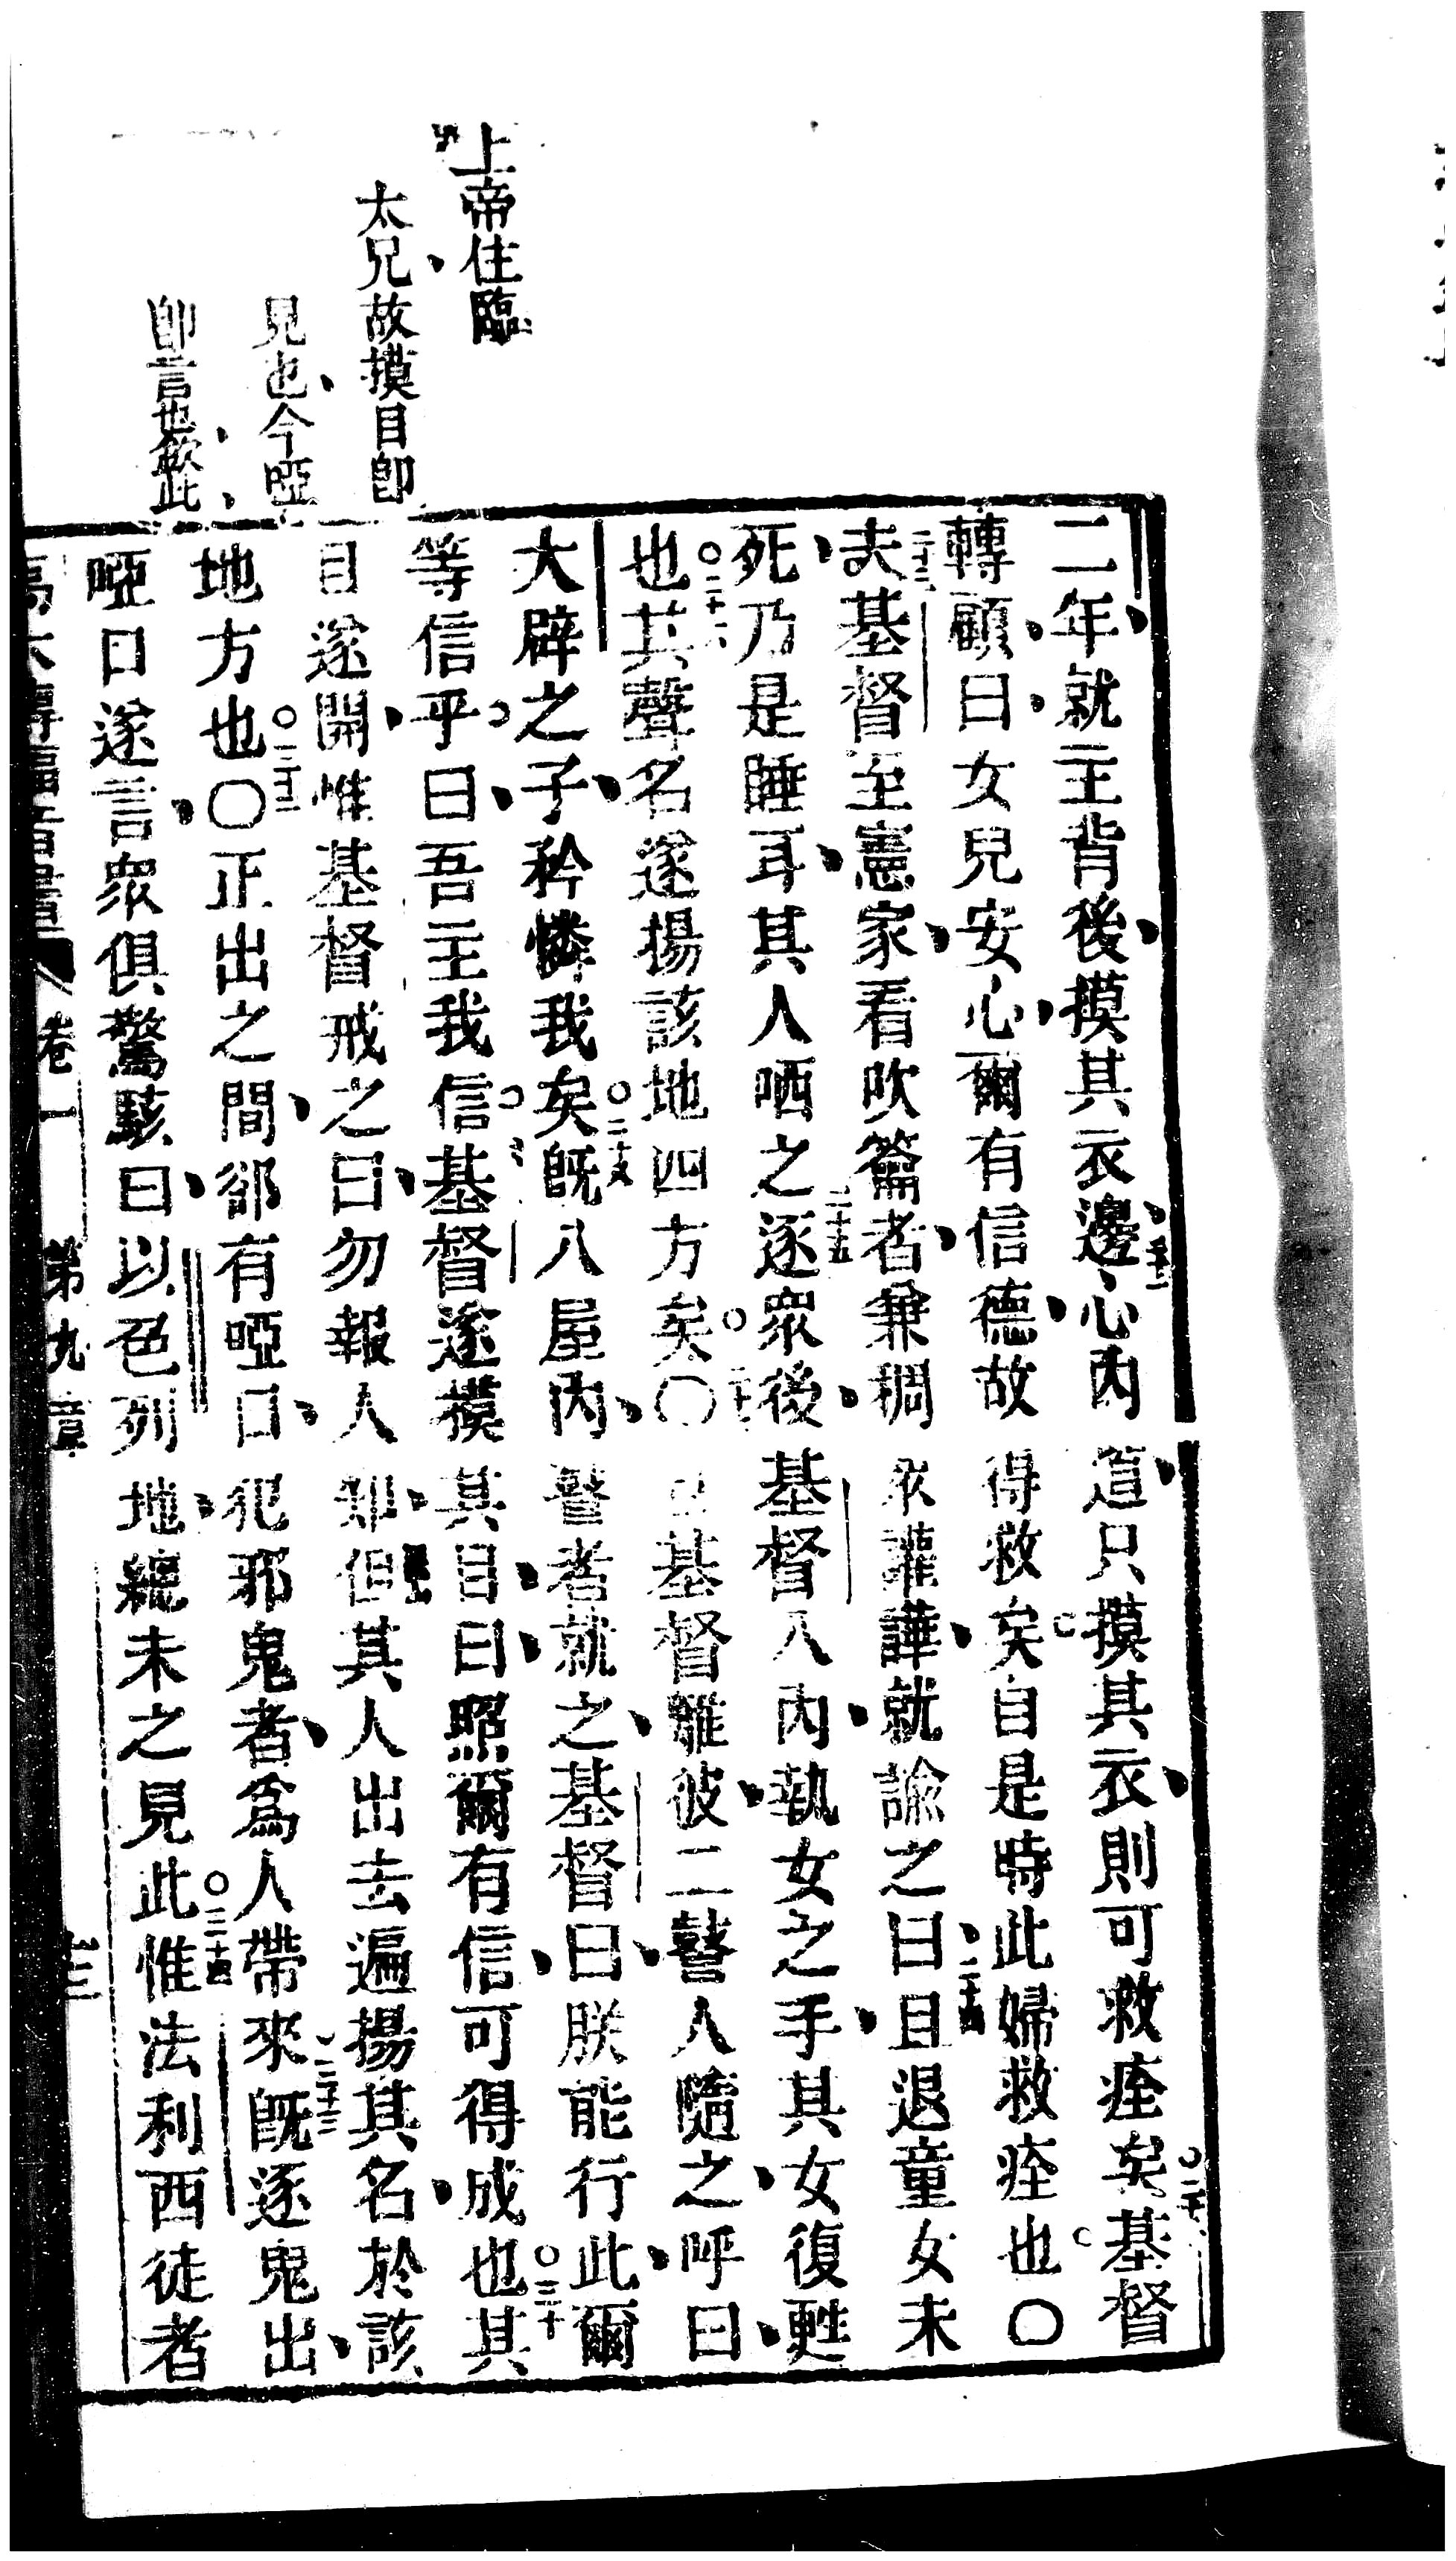 上帝住臨
太兄故摸目卽
見也今啞
卽言也欽此
二年就主背後摸其衣邊心內道只摸其衣則可救痊矣基督
轉顧曰女兒安心爾有信德故得救矣自是時此婦救痊也〇
夫基督至憲家看吹籥者兼稠眾讙譁就諭之曰且退童女未
死乃是睡耳其人哂之逐眾後基督入內執女之手其女復甦
也其聲名遂揚該地四方矣〇基督離彼二瞽人隨之呼曰
大辟之子矜憐我矣旣入屋內瞽者就之基督曰朕能行此爾
等信乎曰吾主我信基督遂摸其目曰照爾有信可得成也其
目遂開惟基督戒之曰勿報人知但其人出去遍揚其名於該
地方也〇正出之間卻有啞口犯邪鬼者爲人帶來旣逐鬼出
啞口遂言眾俱驚駭曰以色列地總未之見此惟法利西徒者
卷一 第九章